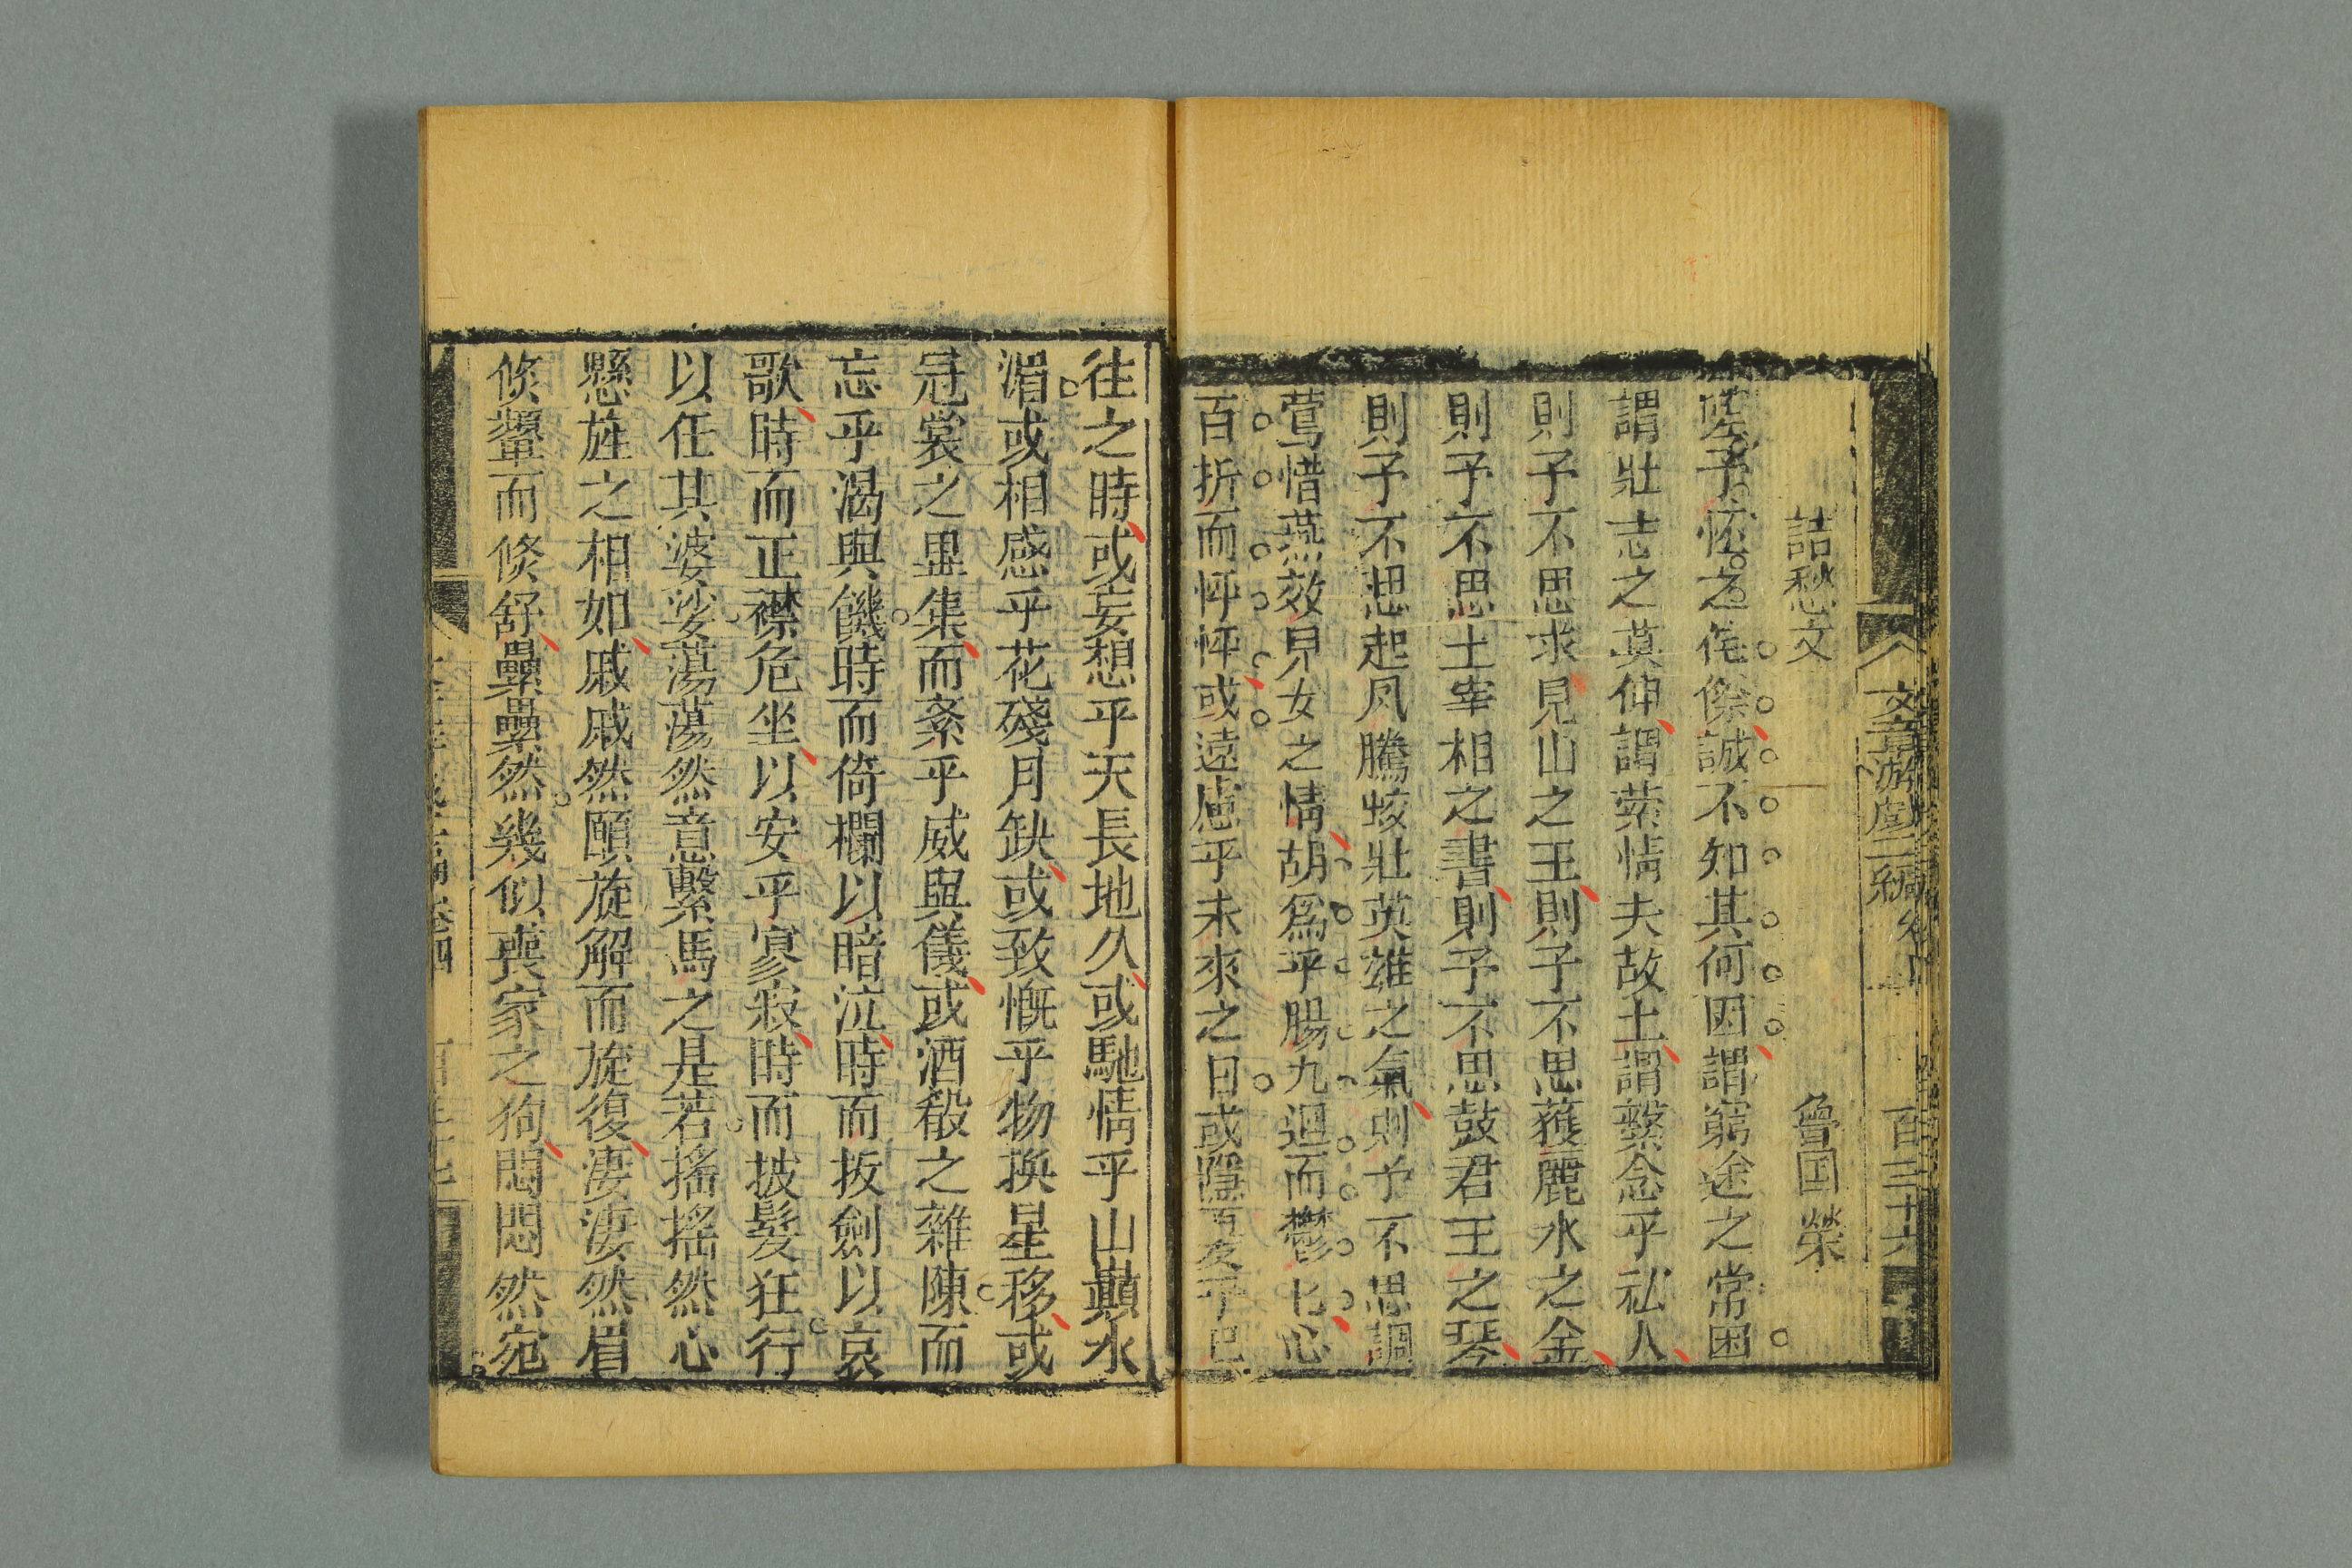 文章游戲二編 卷四 百三十六
詰愁文
魯国榮
侘予怀之侘傺誠不知其何因謂窮途之常困
謂壯志之莫伸謂萦情夫故土謂繫念乎私人
則予不思求見山之玉則予不思獲麗水之金
則予不思士宰相之書則予不思鼓君王之琴
則予不思起凤騰蛟壯英雄之氣則予不思調
鶯惜燕效兒女之情胡爲乎腸九迴而鬱七心
百折而怦怦或遠慮乎未來之日或隱
往之時或妄想乎天長地久或馳情乎山巔水
湄或相感乎花殘月缺或致慨乎物換星移或
冠裳之畢集而紊乎威與儀或酒殽之雜陳而
忘乎渴與饑時而倚欄以暗泣時而拔劍以哀
歌時而正襟危坐以安乎寥寂時而披髮狂行
以任其婆娑蕩蕩然意繫馬之是若搖搖然心
懸旌之相如戚戚然頤旋解而旋復淒淒然眉
倐顰而倐舒纍纍然幾似喪家之狗悶悶然宛
卷四